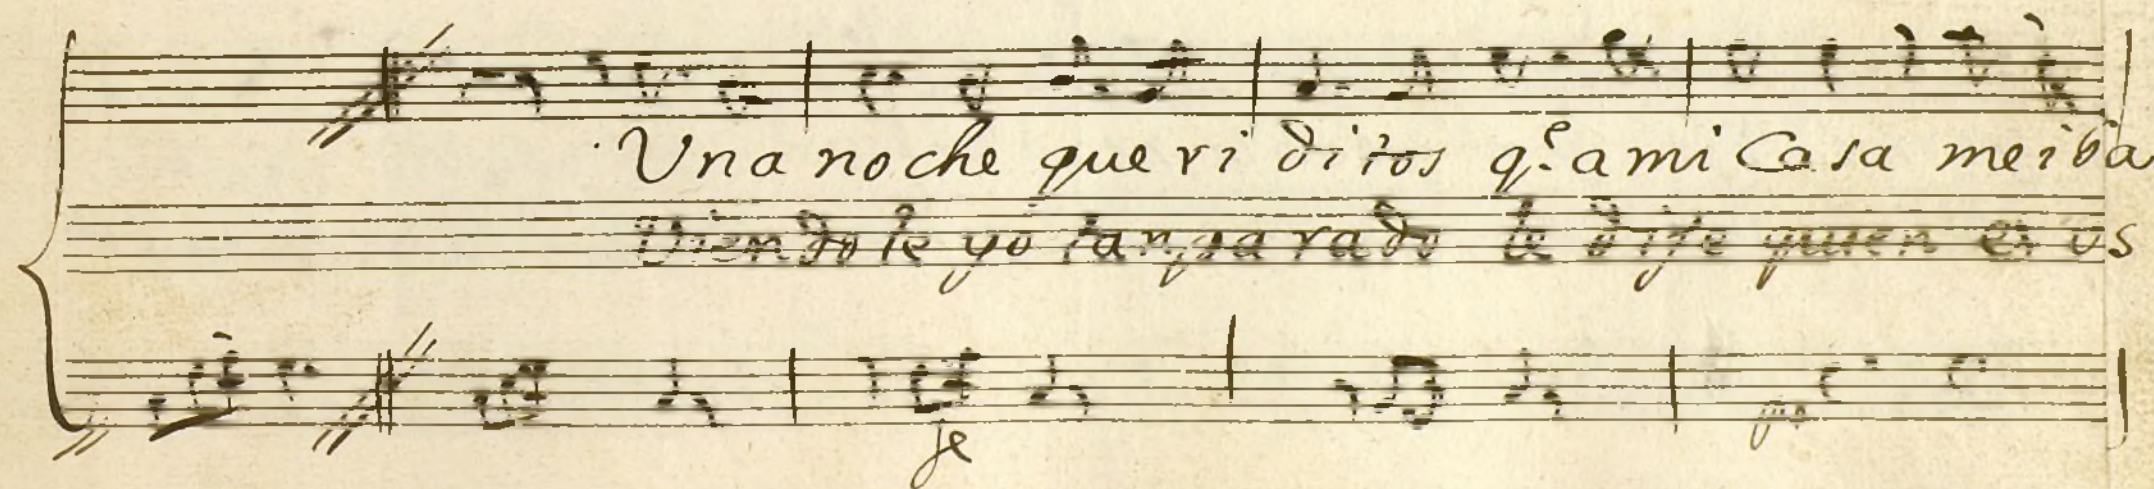 Una noche que ri di tos q.e a mi Casa me iba
Vien do le yo tan pa ra do le dije quien es us
fe
po